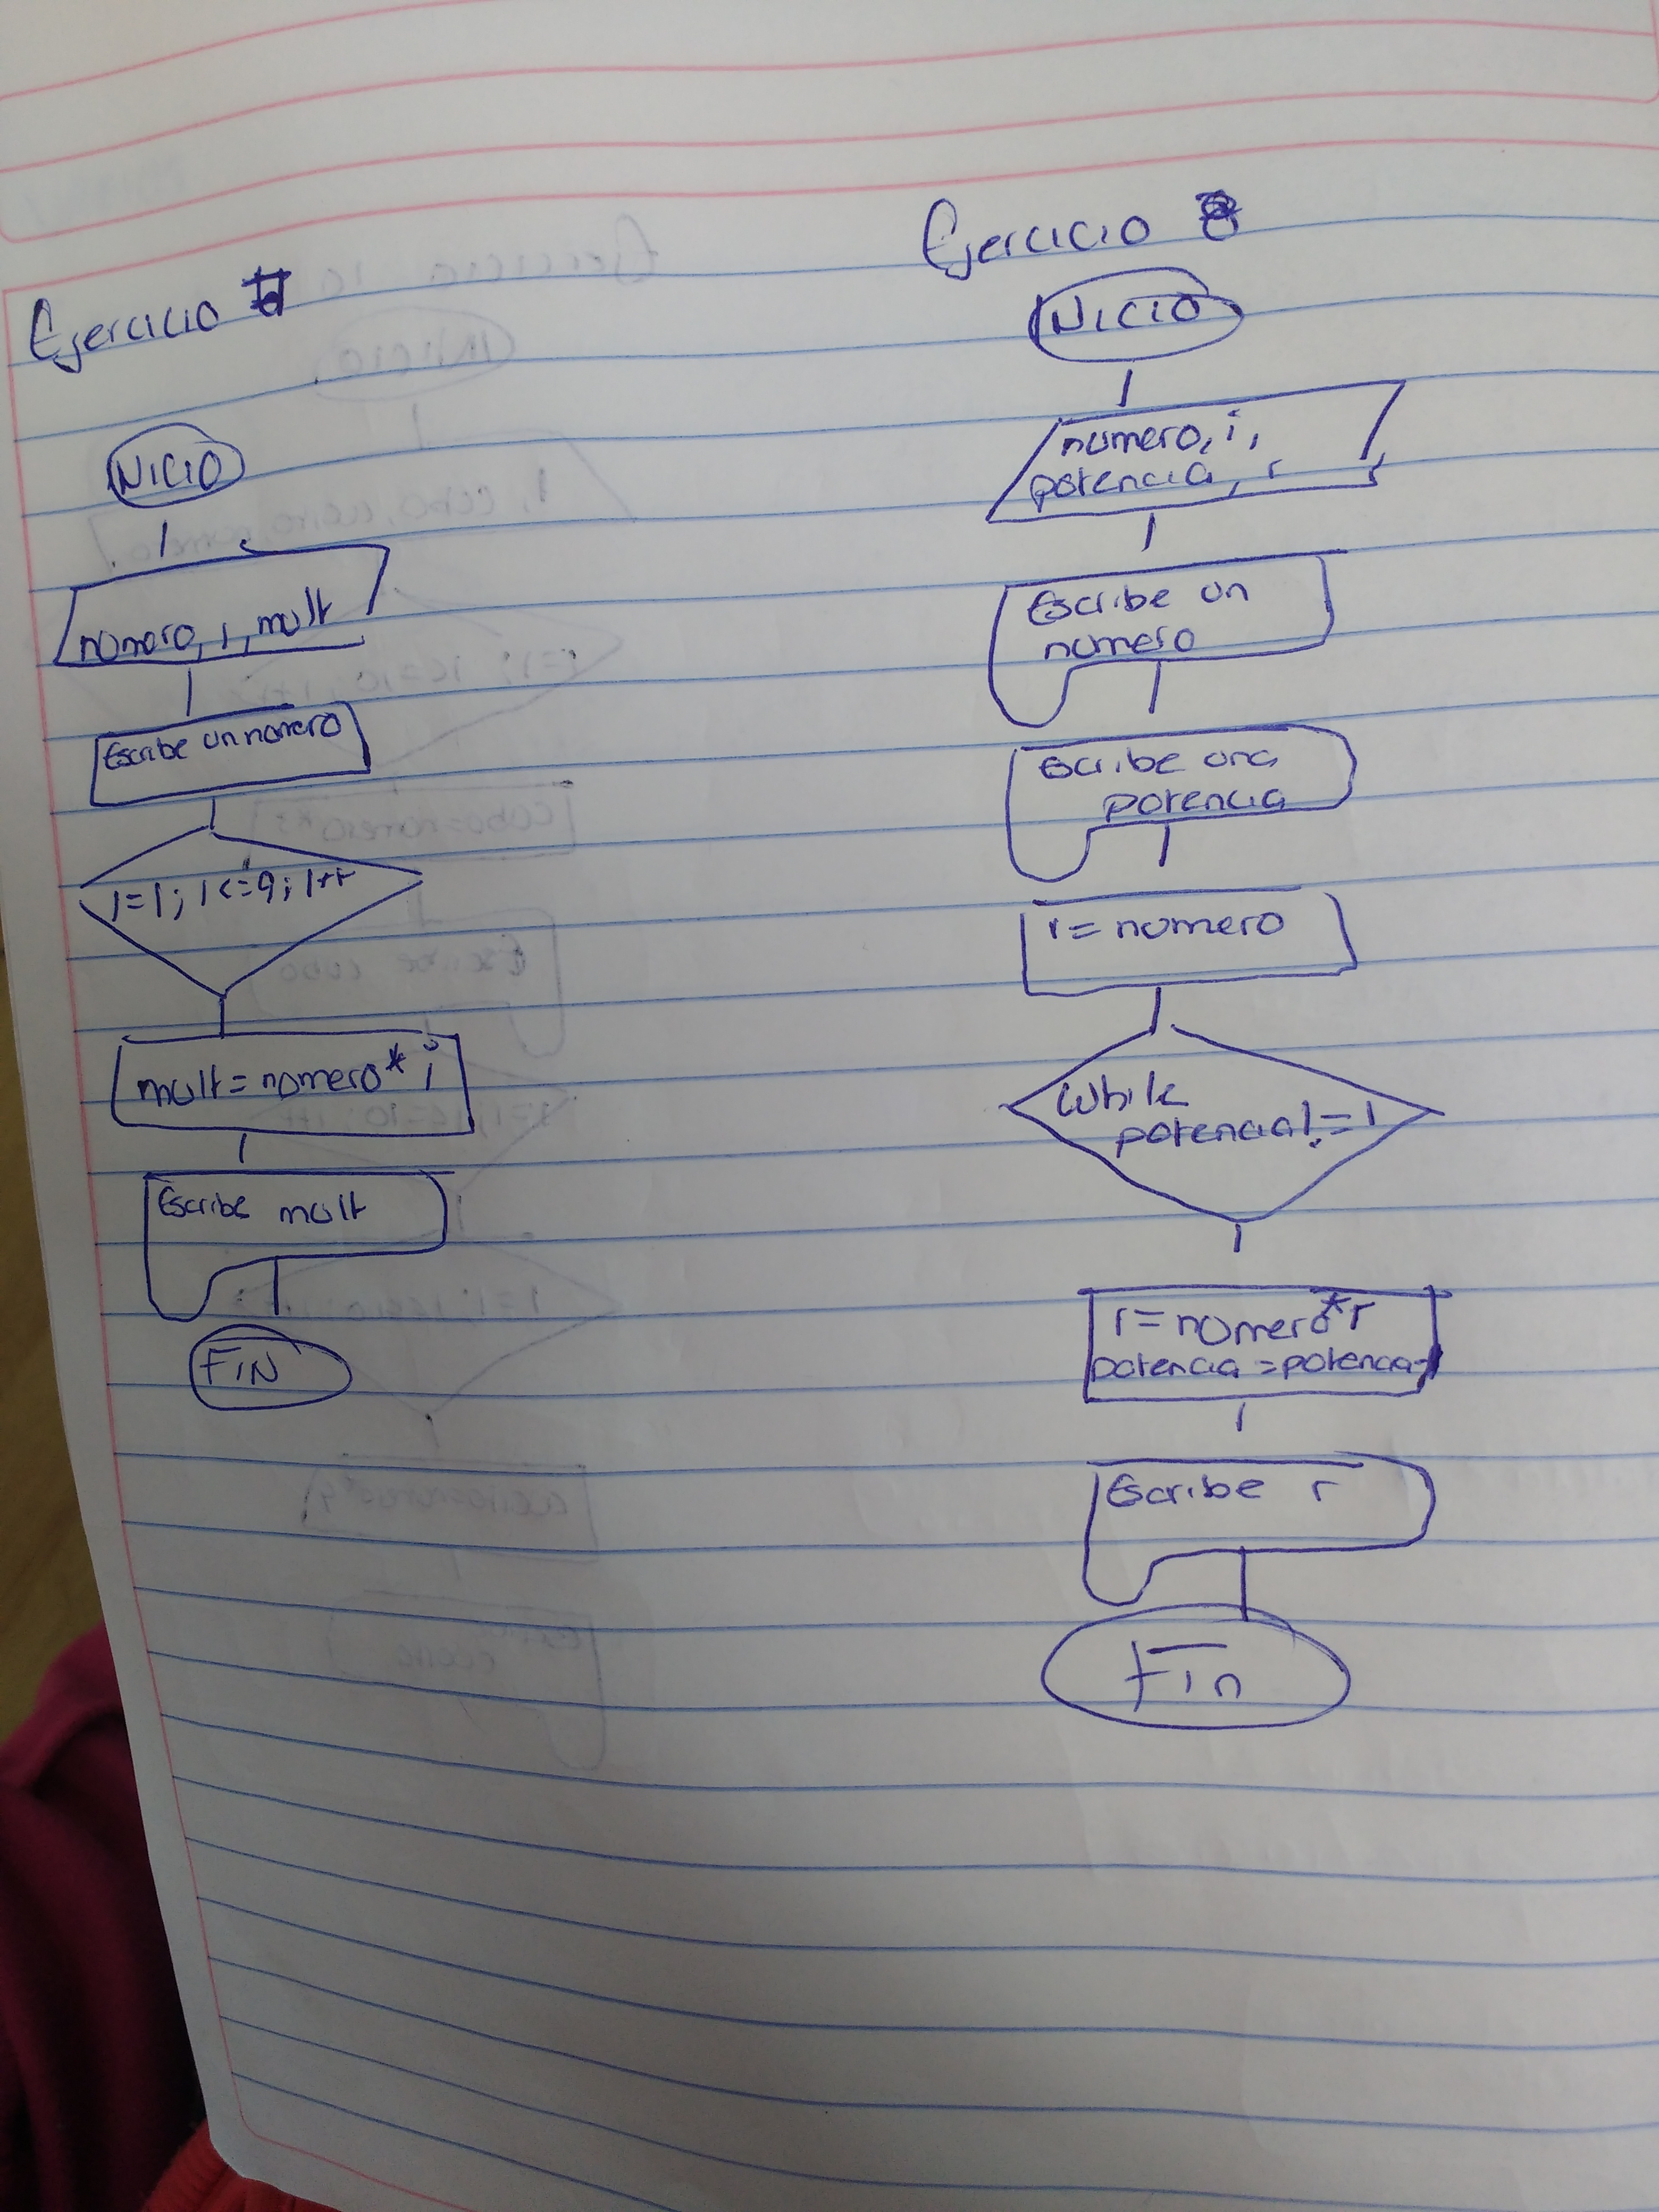 Ejercicio
INICIO
numero, i, mult
Escribe un numero
i=1; i<=9; i++
mult = numero * i
Escribe mult
FIN
Ejercicio 8
INICIO
numero, i,
potencia, r
Escribe un
numero
Escribe una
potencia
r = numero
While
potencia != 1
r = numero * r
potencia = potencia-1
Escribe r
Fin